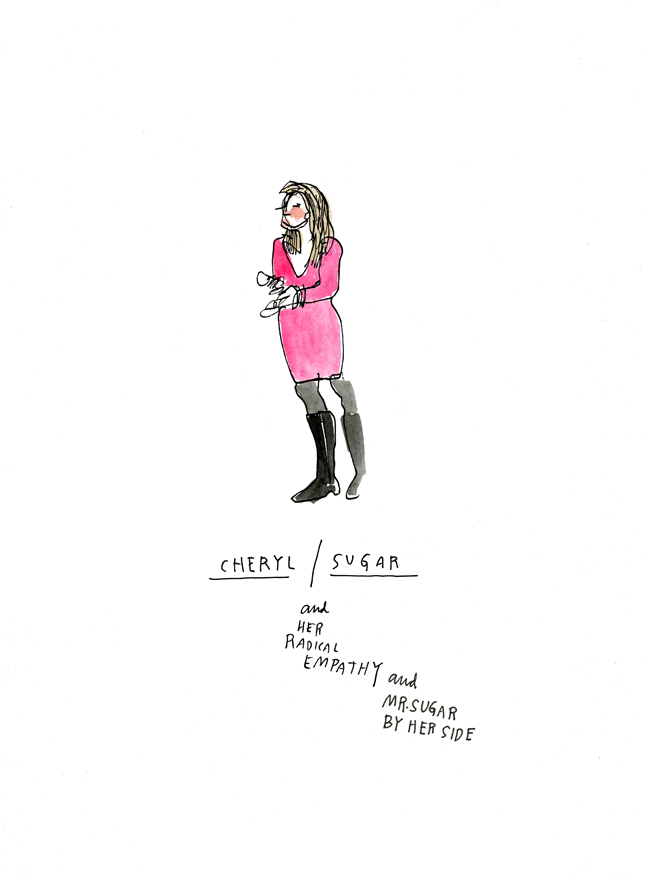 CHERYL / SUGAR
and
HER
RADICAL
EMPATHY and
MR. SUGAR
BY HER SIDE